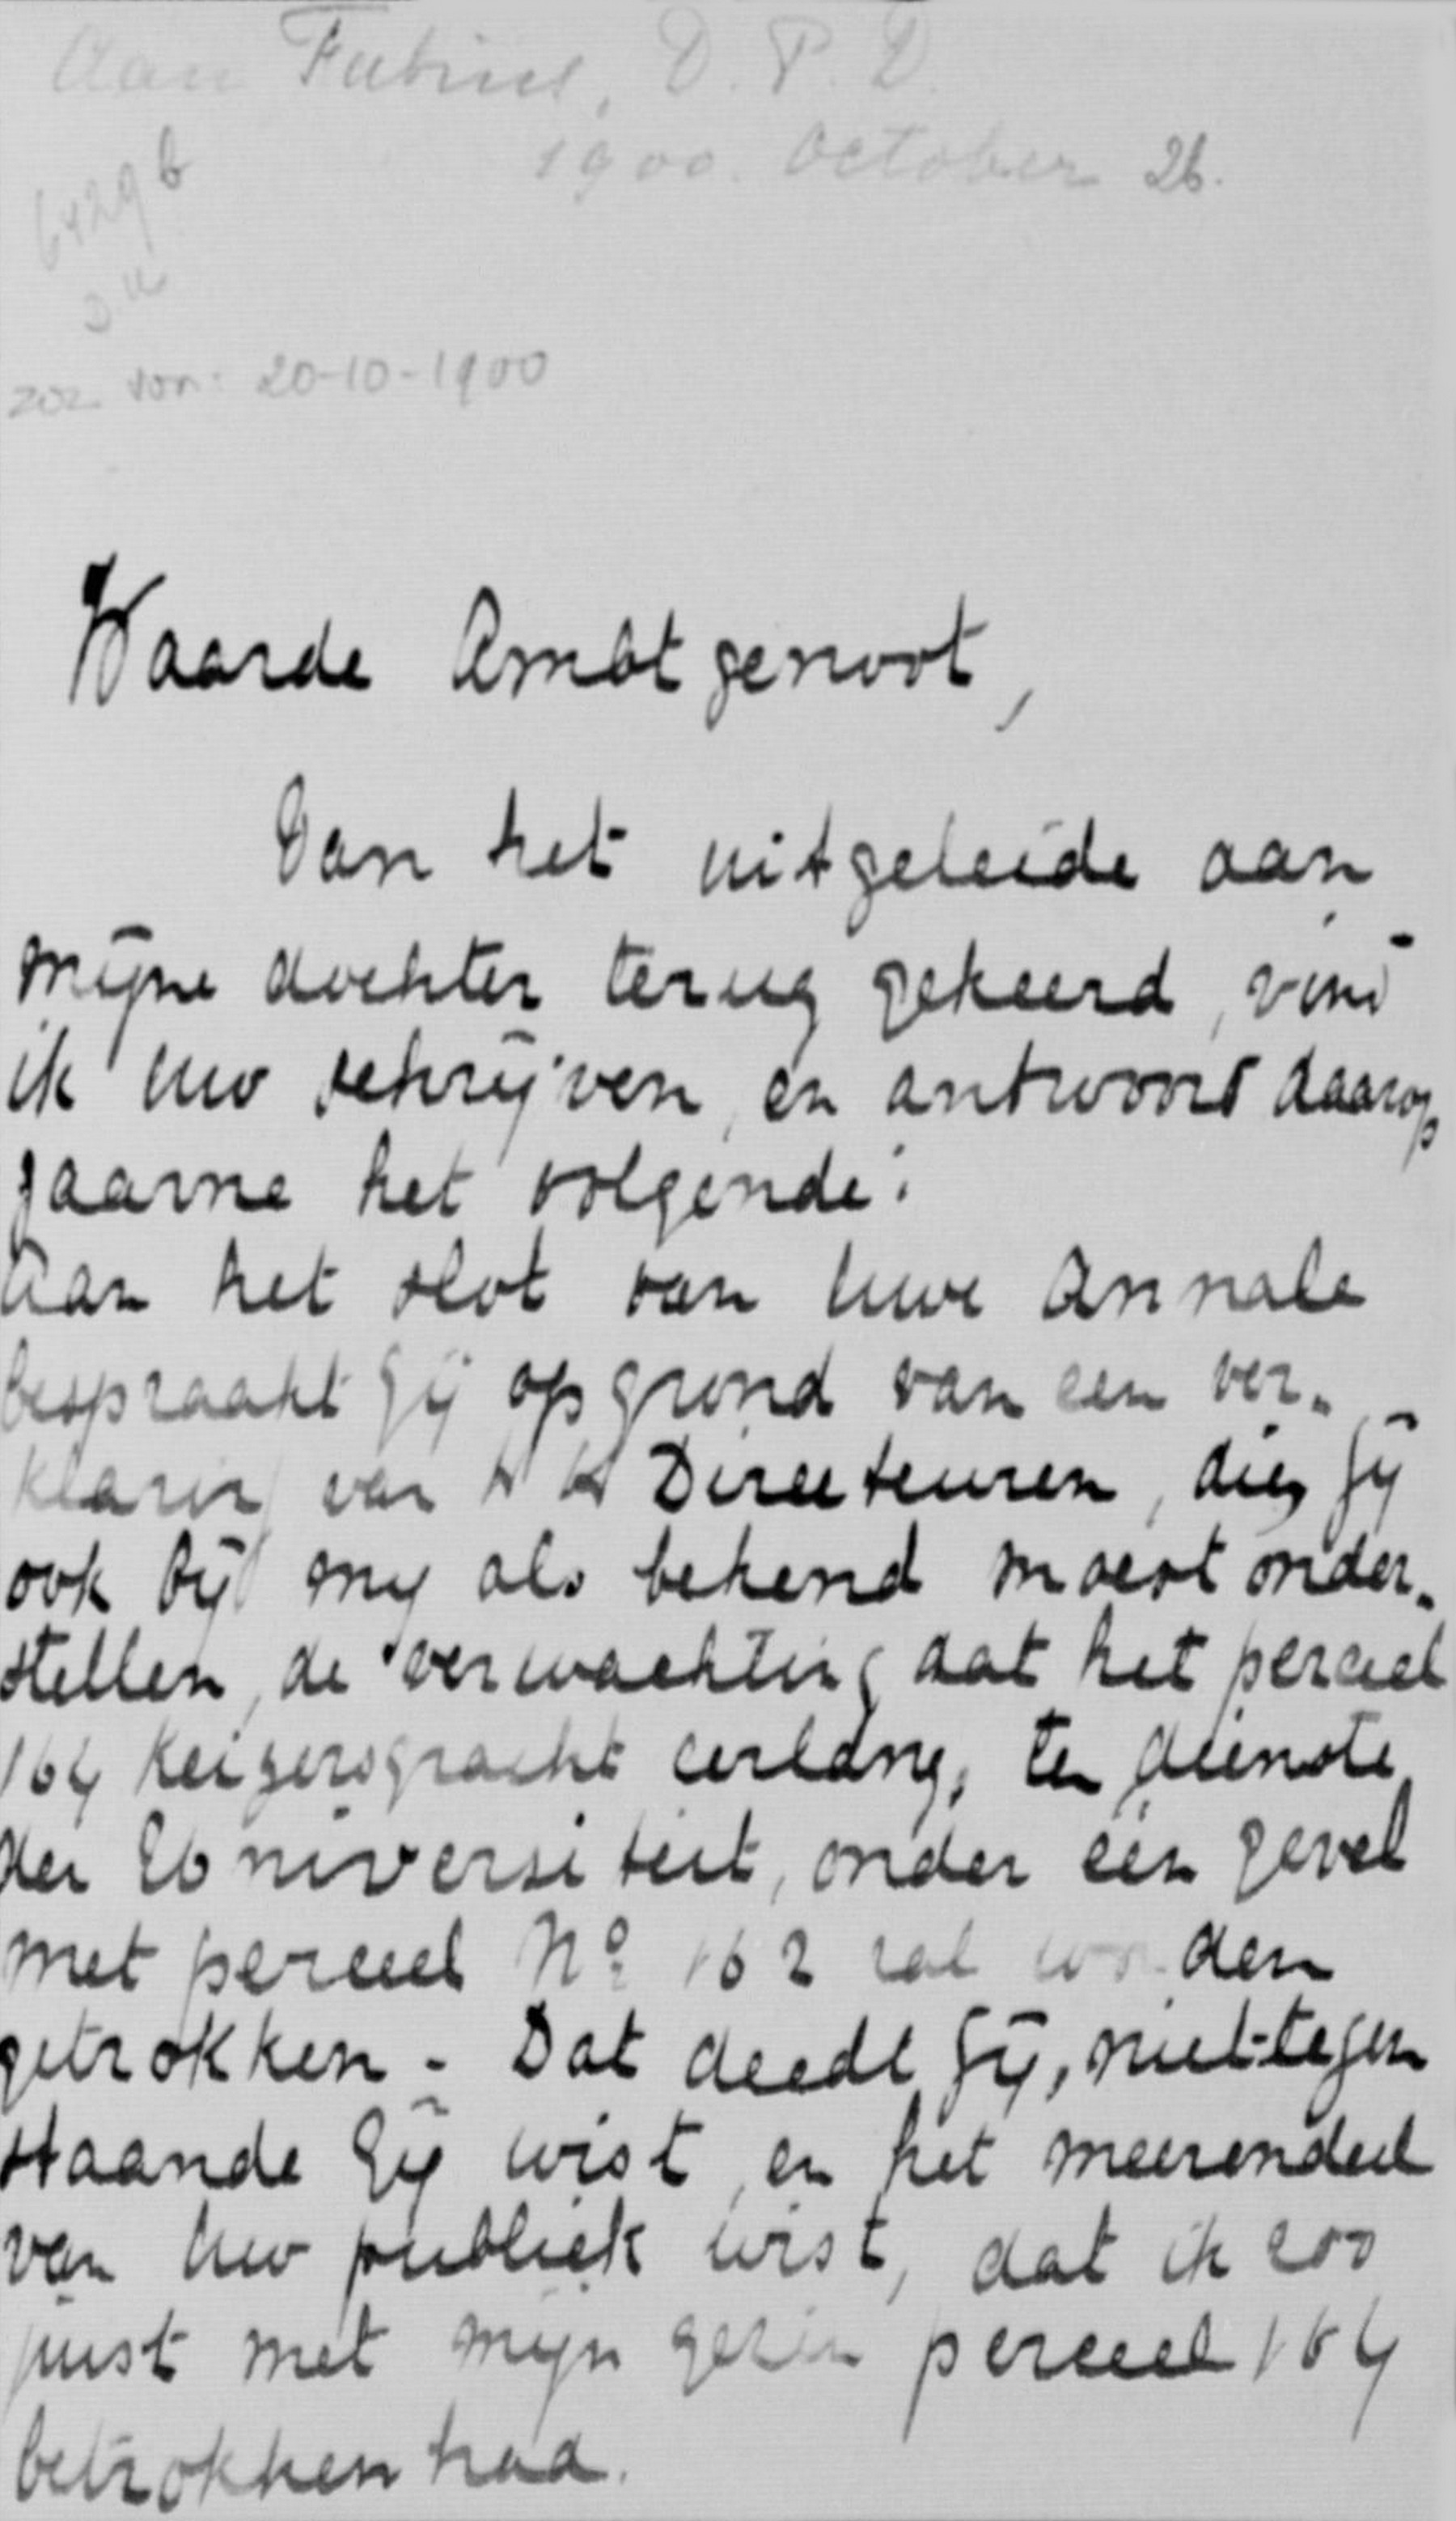 Aan Fabius, D. P. D.
1900. October 26.
6429 b
D.K
zoz van: 20-10-1900
Waarde Ambtgenoot,
Van het uitgeleide aan
mijne dochter terug gekeerd, vind
ik Uw schrijven, en antwoord daarop
gaarne het volgende:
Aan het slot van Uwe Annale
bespraakt Gij op grond van een ver-
klaring van HH Directeuren, die Gij
ook bij mij als bekend moest onder-
stellen, de verwachting dat het perceel
164 Keizersgracht eerlang, ten dienste
der Universiteit, onder één gevel
met perceel No 162 zal worden
getrokken - Dat deedt Gij, niet-tegen
staande Gij wist, en het meerendeel
van Uw publiek wist, dat ik zoo
juist met mijn gezin perceel 164
betrokken had.